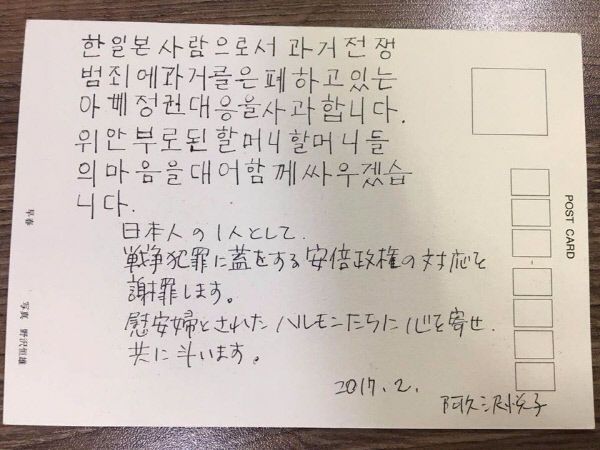 한일본사람으로서과거전쟁
범죄에과거를은폐하고있는
아베정권대응을사과합니다.
위안부로된할머니할머니들
의마음을대어함께싸우겠습
니다.
日本人の1人として.
戦争犯罪に蓋をする安倍政権の対応を
謝罪します。
慰安婦とされたハルモニたちに心を寄せ.
共に斗います。
2017.2.
阿久沢悦子
POST CARD
早春
写真 野沢恒雄